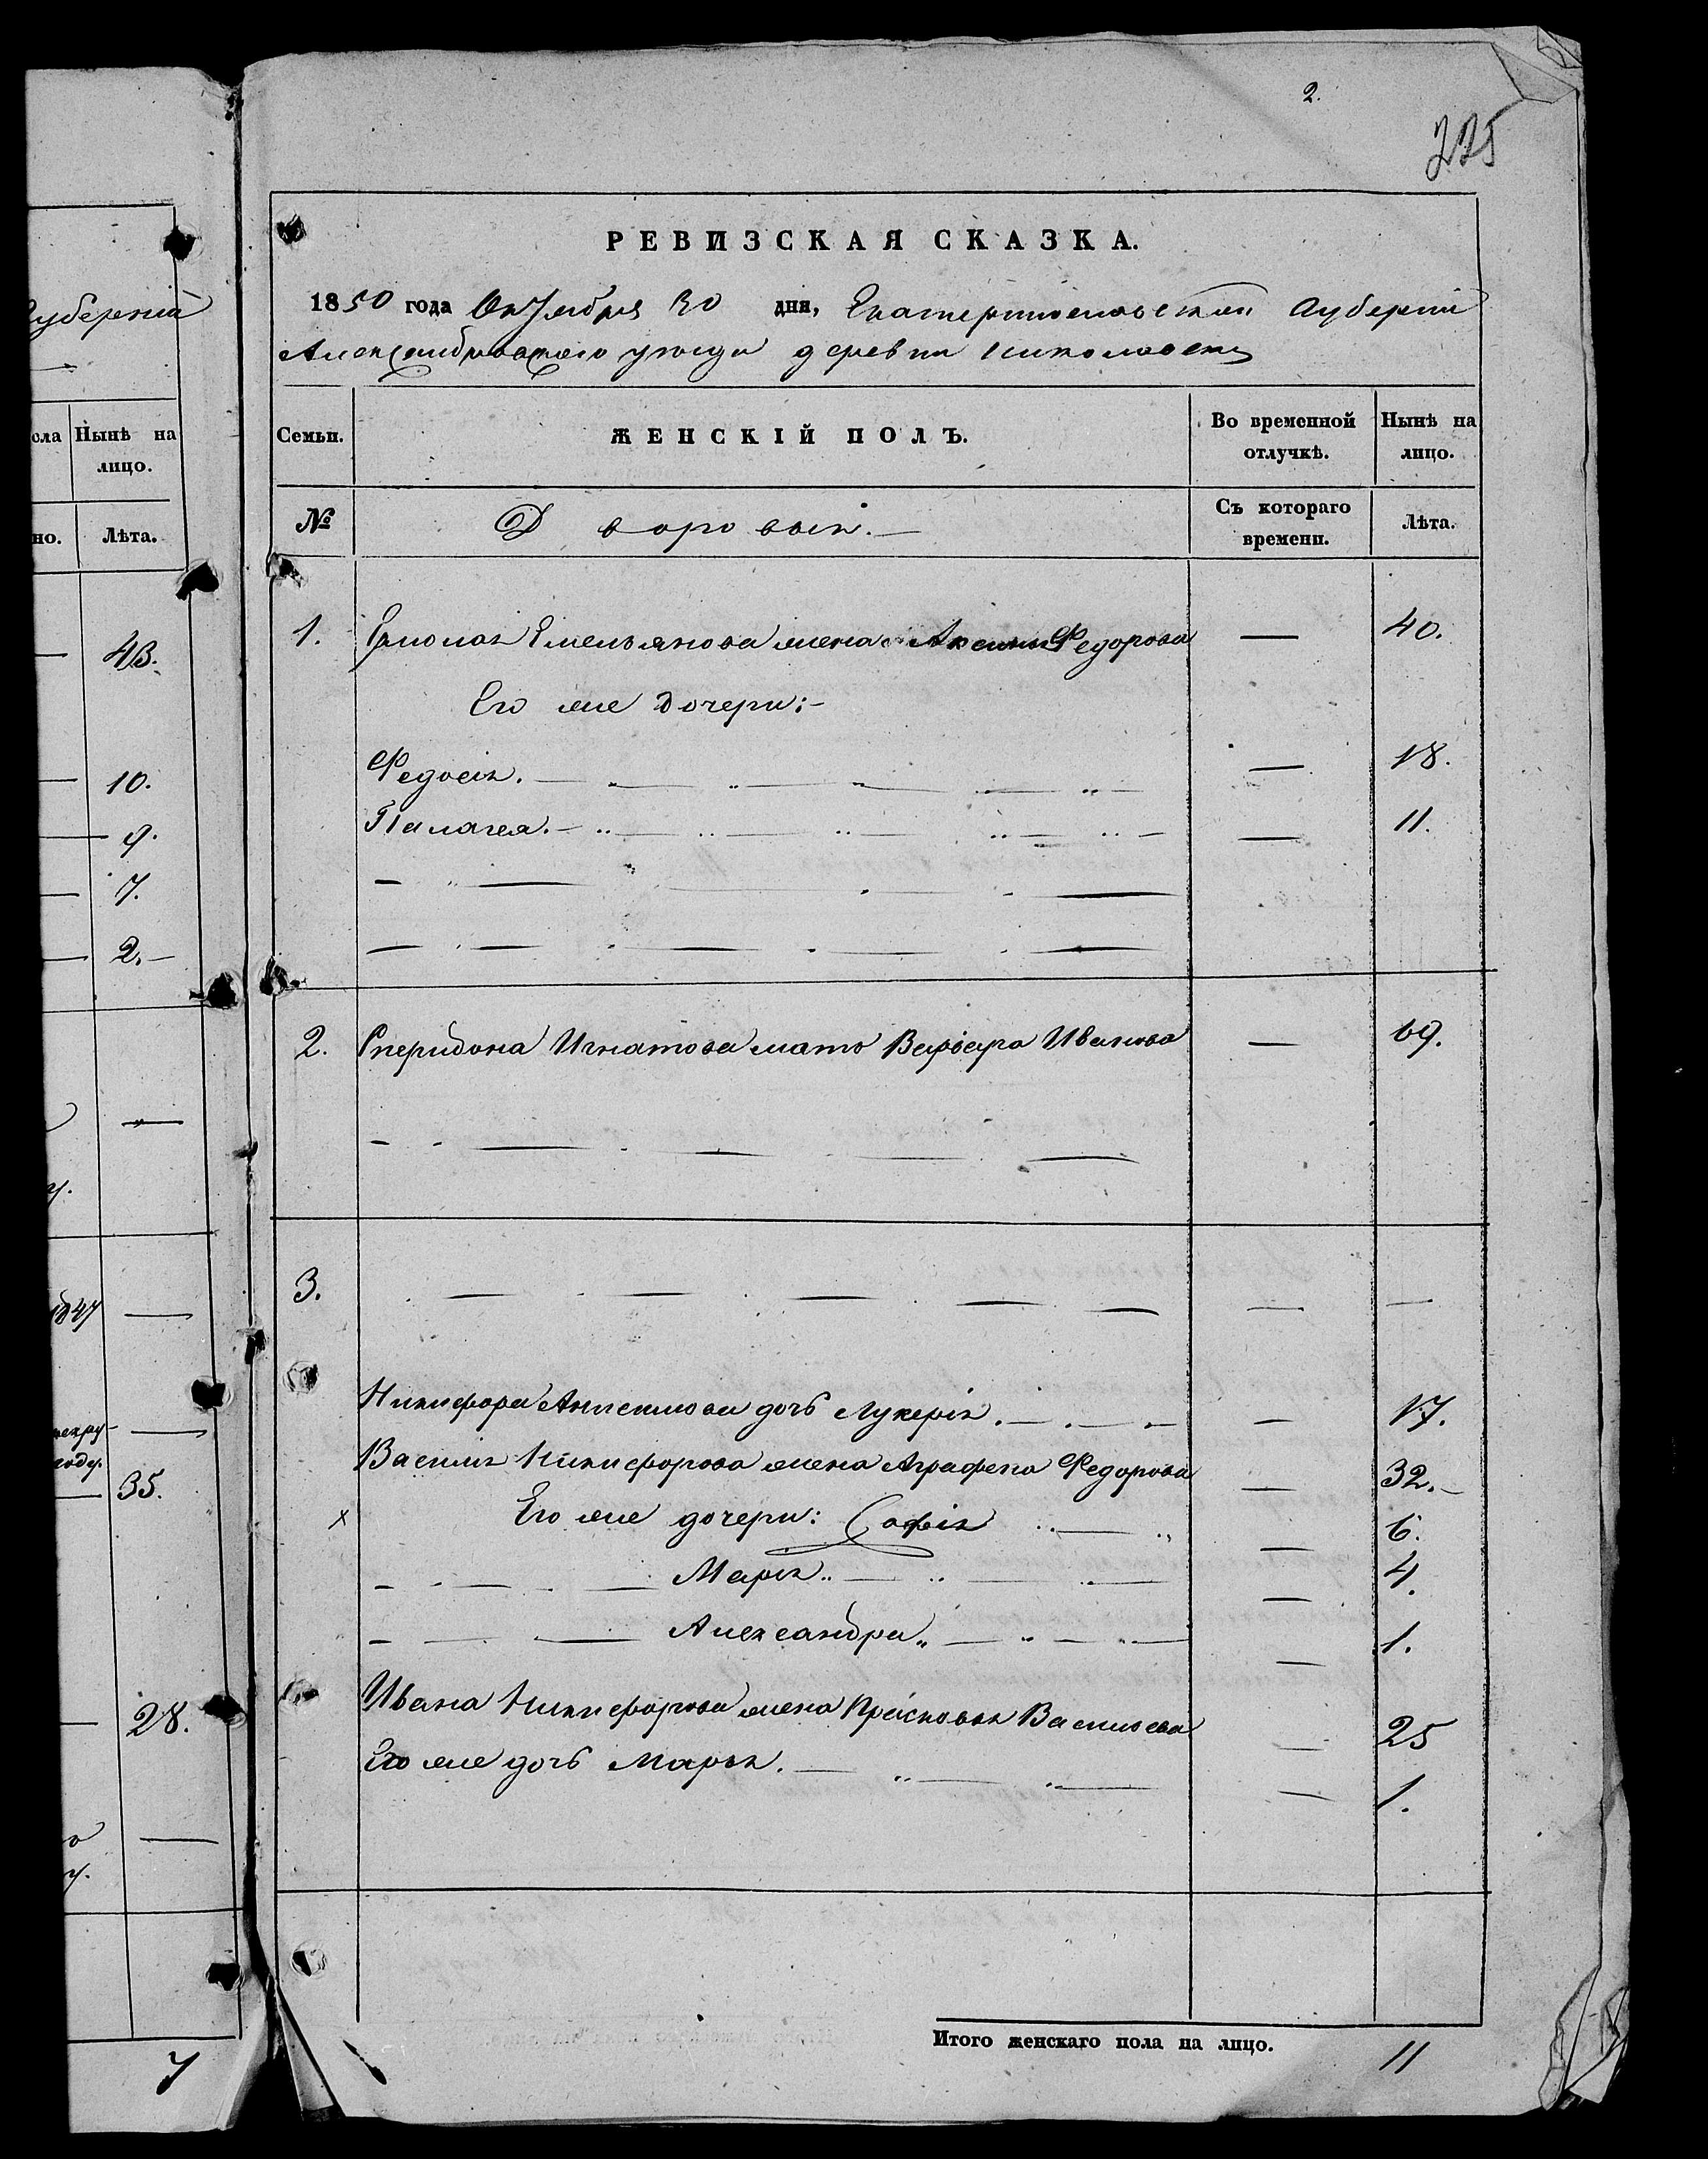 2.
225
РЕВИЗСКАЯ СКАЗКА.
1850 года Октября 30 дня, Екатеринославской Губерніи
Александровскаго уѣзда деревни Николаевки
Семьи.
ЖЕНСКІЙ ПОЛЪ.
Во временной отлучкѣ.
Нынѣ на лицо.
№
Дворовыя.
Съ котораго времени.
Лѣта.
1. Ермолая Емельянова жена Аксинья Федорова — 40.
Его же дочери:
Федосія. — 18.
Палагея. — 11.
2. Спиридона Игнатова мать Варвара Иванова — 69.
3. — — —
Никифора Анисимова дочь Лукерія. — 17.
Василія Никифорова жена Аграфена Федорова — 32.
х Его же дочери: Софія — 6.
Марія — 4.
Александра — 1.
Ивана Никифорова жена Прасковья Васильева — 25
Его же дочь Марья. — 1.
Итого женскаго пола на лицо. 11
Губерній
ола
Нынѣ на лицо.
но.
Лѣта.
43.
10.
9.
7.
2.
35.
28.
7